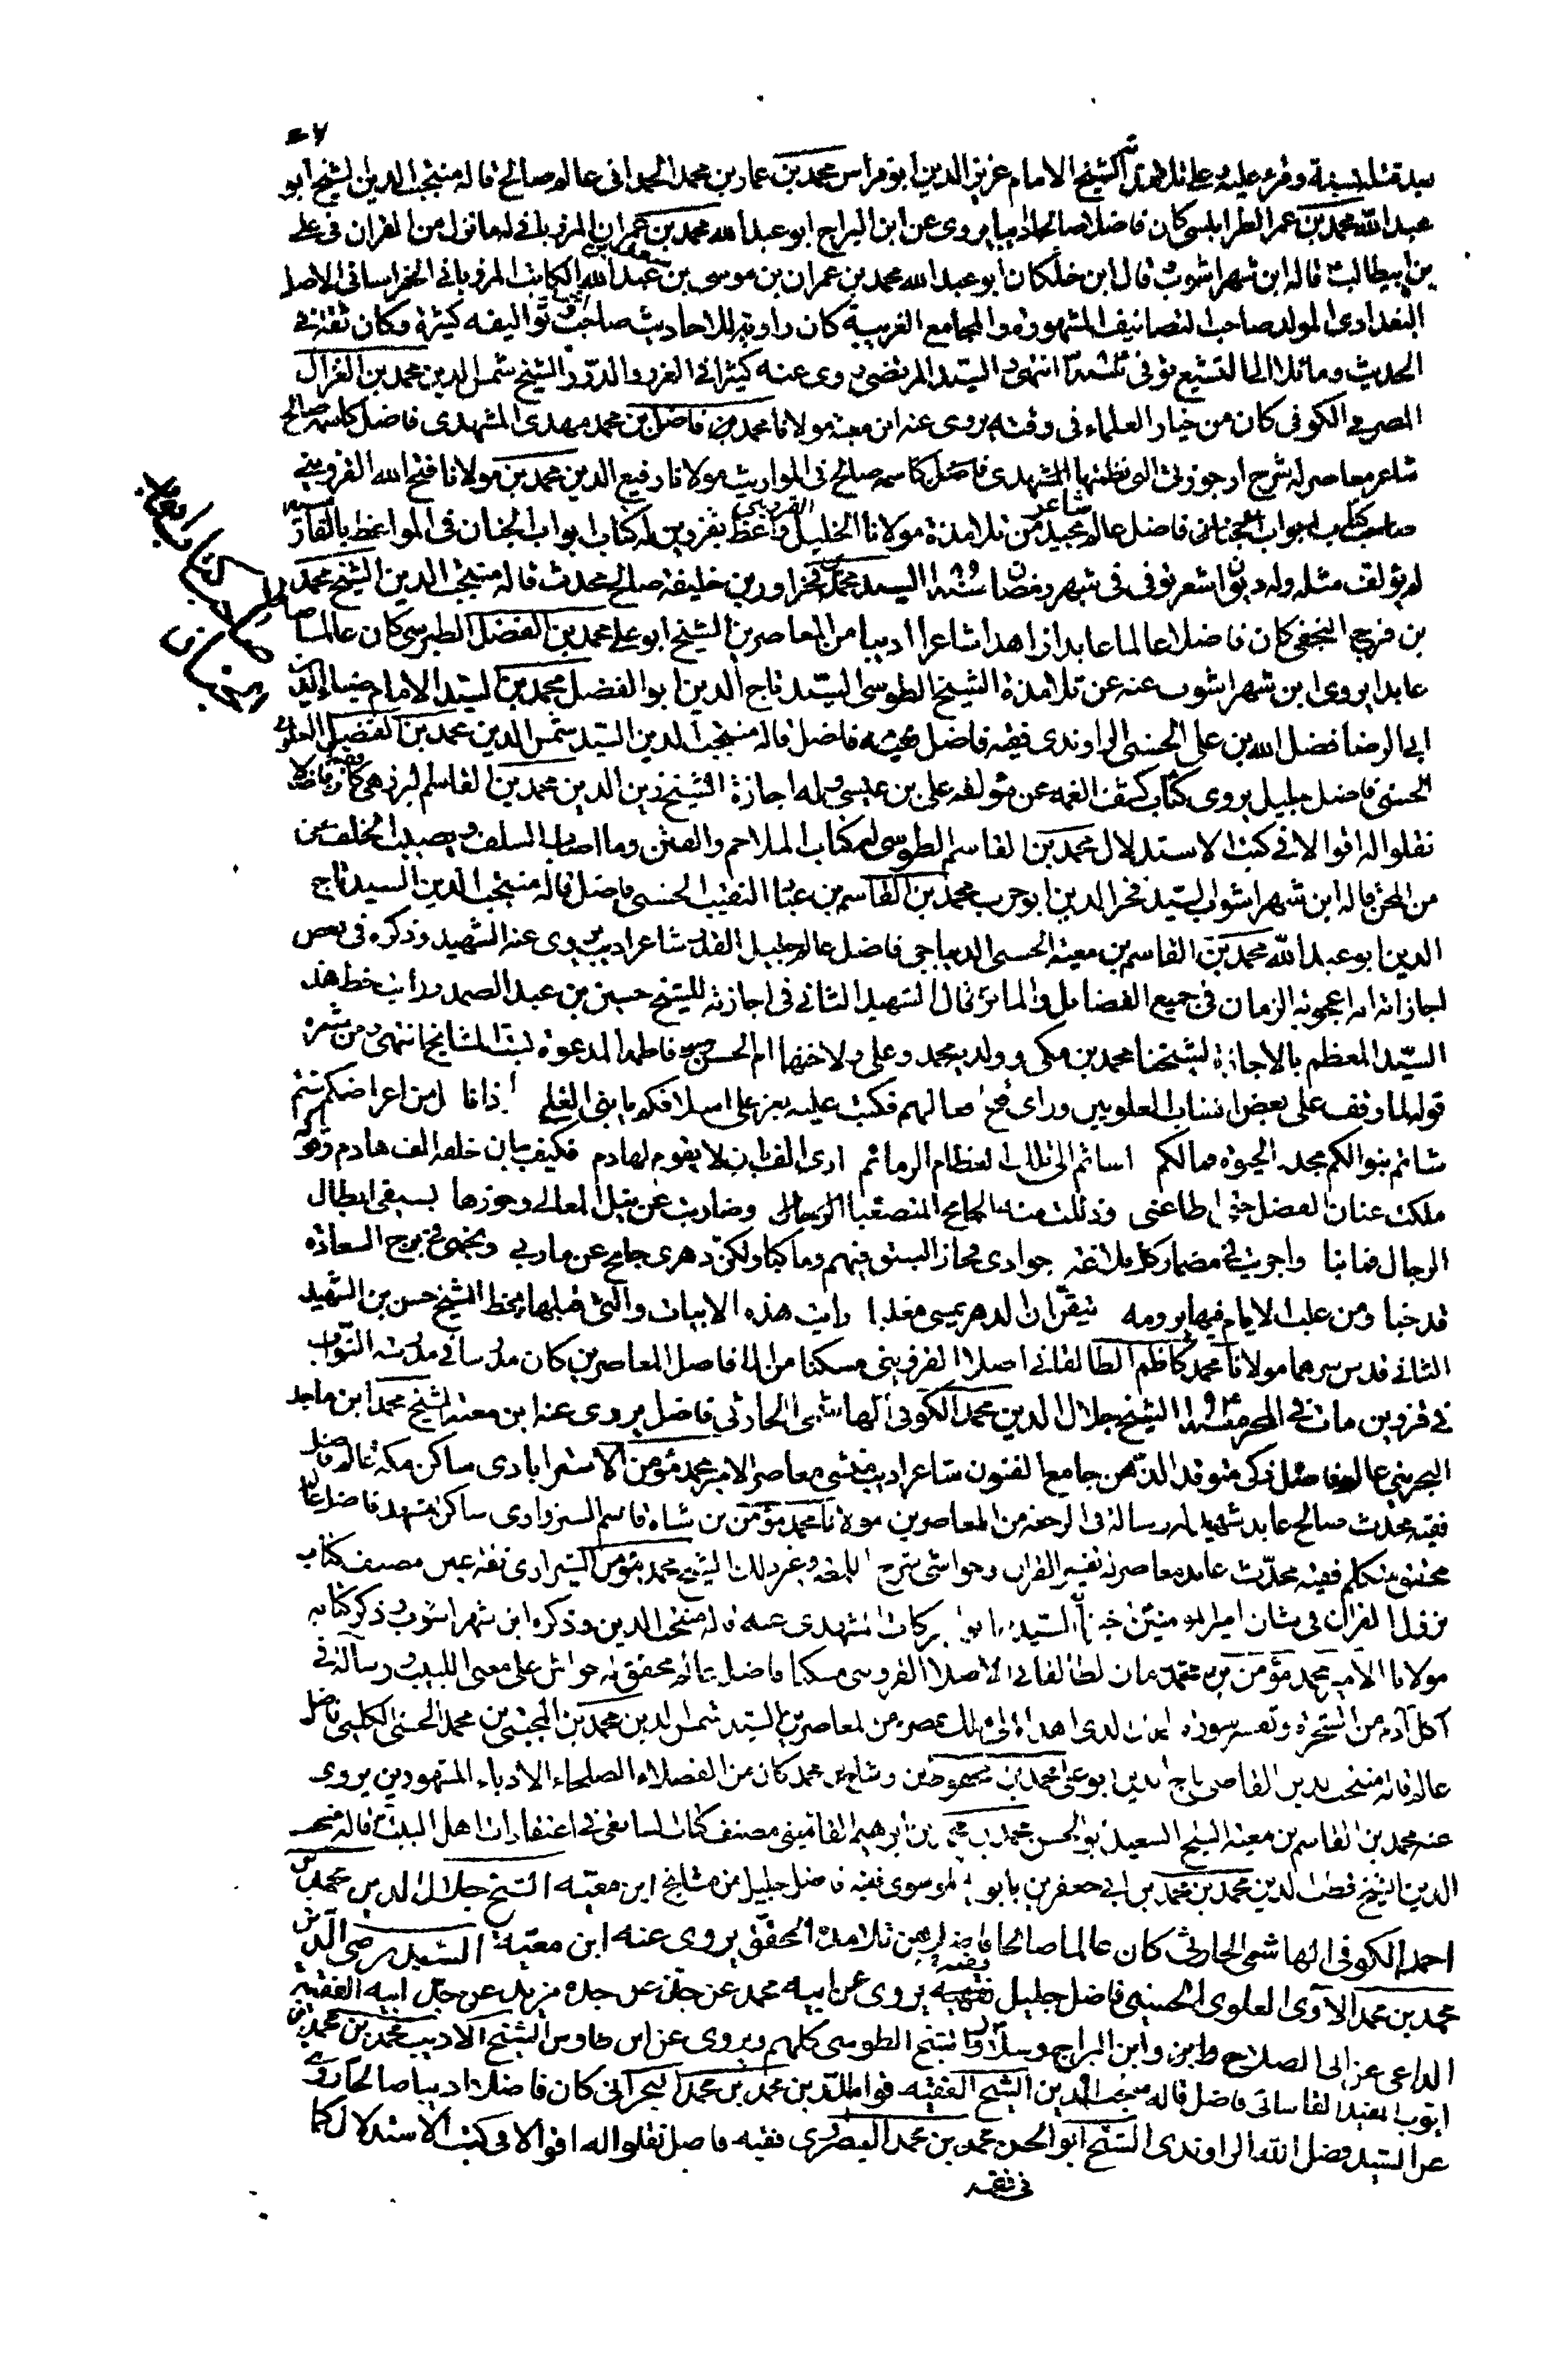 عبد الله محمد بن عمر الطرابلسى كان فاضلا صالحا اديبا يروى عن ابن البراج ابو عبد الله محمد بن عمران المرزبانى له ما نزل من القران فى على
بن ابيطالب قاله ابن شهراشوب قال ابن خلكان ابو عبد الله محمد بن عمران بن موسى بن عبد الله الكاتب المرزبانى الخراسانى الاصل
البغدادى المولد صاحب التصانيف المشهورة والمجاميع الغريبة كان راوية للاحاديث صاحب تواليفه كثيرة وكان ثقة فى
الحديث ومائلا الى التشيع توفى انتهى السيد المرتضى يروى عنه كثيرا فى الغرر والدرر الشيخ شمس الدين محمد بن الغزال
المصرى الكوفى كان من خيار العلماء فى وقته يروى عنه ابن معية مولانا محمد فاضل بن محمد مهدى المشهدى فاضل كاسمه صالح
شاعر معاصر له شرح ارجوزتى التى نظمتها المشهدى فاضل كاسمه صالح فى المواريث مولانا رفيع الدين محمد بن مولانا فتح الله القزوينى
صاحب كتاب ابواب الجنان فاضل عالم شاعر مجيد من تلامذة مولانا الخليل القزوينى واعظ بقزوين له كتاب ابواب الجنان فى المواعظ بالفارسية
لم يؤلف مثله وله ديوان شعر توفى فى شهر رمضان السيد محمد بن فخراور بن خليفة صالح محدث قاله منتجب الدين الشيخ محمد
بن فرج النجفى كان فاضلا عالما عابدا زاهدا شاعرا اديبا من المعاصرين الشيخ ابو على محمد بن الفضل الطبرسى كان عالما صالحا
عابدا يروى ابن شهراشوب عنه عن تلامذة الشيخ الطوسى السيد تاج الدين ابو الفضل محمد بن السيد الامام ضياء الدين
ابى الرضا فضل الله بن على الحسنى الراوندى فقيه فاضل قاله منتجب الدين السيد شمس الدين محمد بن الفضل العلوى
الحسنى فاضل جليل يروى كتاب كشف الغمة عن مؤلفه على بن عيسى وله اجازة الشيخ زين الدين محمد بن القاسم البرزهى كان فقيها فاضلا
نقلوا له اقوالا فى كتب الاستدلال محمد بن القاسم الطوسى له كتاب الملاحم والفتن وما اصاب السلف ويصيب الخلف من
من المحن قاله ابن شهراشوب السيد فخر الدين ابو حرب محمد بن القاسم بن عباد النقيب الحسنى فاضل قاله منتجب الدين السيد تاج
الدين ابو عبد الله محمد بن القاسم بن معية الحسنى الديباجى فاضل عالم جليل القدر شاعر اديب يروى عنه الشهيد وذكره فى بعض
اجازاته انه اعجوبة الزمان فى جميع الفضائل والمآثر قال الشهيد الثانى فى اجازته للشيخ حسين بن عبد الصمد ورايت خط هذا
السيد المعظم بالاجازة لشيخنا محمد بن مكى وولديه محمد وعلى ولاختهما ام الحسن فاطمة المدعوة بست المشايخ انتهى ومن شعره
قوله لما وقف على بعض انساب العلويين وراى قبح فعالهم فكتب عليه يعز على اسلافكم يا بنى العلى اذا نال من اعراضكم شتم
شاتم بنوا لكم مجد الحيوة فما لكم اساتم الى تلك العظام الرمائم ارى الف بان لا يقوم لهادم فكيف ببان خلفه الف هادم وقوله
ملكت عنان الفضل حتى اطاعنى وذللت منه الجامح المتصعبا وضاربت عن نيل المعالى وحوزها بسيفى ابطال
الرجال فما نبا واجريت فى مضمار كل بلاغة جوادى فحاز السبق فيهم وما كبا ولكن دهرى جامح عن ماربى ونجمى فى برج السعادة
قد خبا ومن غلب الايام فيما يرومه تيقن ان الدهر يمسى مغلبا رايت هذه الابيات والتى قبلها بخط الشيخ حسن بن الشهيد
الثانى قدس سرهما مولانا محمد كاظم الطالقانى اصلا القزوينى مسكنا من افاضل المعاصرين كان مدرسا فى مدرسة النواب
فى قزوين مات فى المحرم الشيخ جلال الدين محمد الكوفى الهاشمى الحارثى فاضل يروى عنه ابن معية الشيخ محمد ابن ماجد
البحرينى عالم فاضل ذكى متوقد الذهن جامع الفنون شاعر اديب منشى معاصر الامير محمد مؤمن الاسترابادى ساكن مكة عالم فاضل
فقيه محدث صالح عابد شهيد له رسالة فى الرجعة من المعاصرين مولانا محمد مؤمن بن شاه قاسم السبزوارى ساكن مشهد فاضل عالم
محقق متكلم فقيه محدث عابد معاصر له تفسير القران وحواشى شرح اللمعة وغير ذلك الشيخ محمد بن مؤمن الشيرازى ثقة عين مصنف كتاب
نزول القران فى شان امير المؤمنين السيد ابو البركات المشهدى عنه قاله منتجب الدين وذكره ابن شهراشوب وذكر كتابه
مولانا الامير محمد مؤمن بن محمد زمان الطالقانى اصلا القزوينى مسكنا فاضل عالم محقق له حواش على معنى اللبيب ورسالة فى
اكل آدم من الشجرة وتفسير سورة السيد شمس الدين محمد بن المجتبى بن محمد الحسنى الكلينى فاضل
عالم قاله منتجب الدين القاضى تاج الدين ابو على محمد بن محفوظ بن وشاح بن محمد كان من الفضلاء الصلحاء الادباء المشهورين يروى
عنه محمد بن القاسم بن معية الشيخ السعيد ابو الحسن محمد بن ابرهيم القاينى مصنف كتاب فى اعتقادات اهل البيت قاله منتجب
الدين الشيخ قطب الدين محمد بن محمد بن ابى جعفر بن بابويه الموسوى فقيه فاضل جليل من مشايخ ابن معية الشيخ جلال الدين محمد بن
احمد الكوفى الهاشمى الحارثى كان عالما صالحا فاضلا من تلامذة المحقق يروى عنه ابن معية السيد رضى الدين
محمد بن محمد الآوى العلوى الحسينى فاضل جليل فقيه يروى عن ابيه محمد عن جده زيد عن جد ابيه الفقيه
الداعى عن ابى الصلاح وابن البراج وسلار والشيخ الطوسى كلهم ويروى عن ابن طاوس الشيخ الاديب محمد بن محمد بن
ايوب المفيد القاسانى فاضل قاله منتجب الدين الشيخ الفقيه قوام الدين محمد بن محمد البحرانى كان فاضلا اديبا صالحا يروى
عن السيد فضل الله الراوندى الشيخ ابو الحسن محمد بن محمد البصروى فقيه فاضل نقلوا له اقوالا فى كتب الاستدلال كما
فى نقد